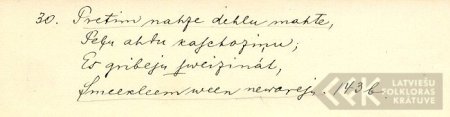 30. Pretim nahze dehlu mahte,
Peļu ahdu kaschoziņu;
Es gribeju sweizinát,
Smeekleem ween newareju. 1436.
LATVIEŠU
FOLKLORAS
KRATUVE